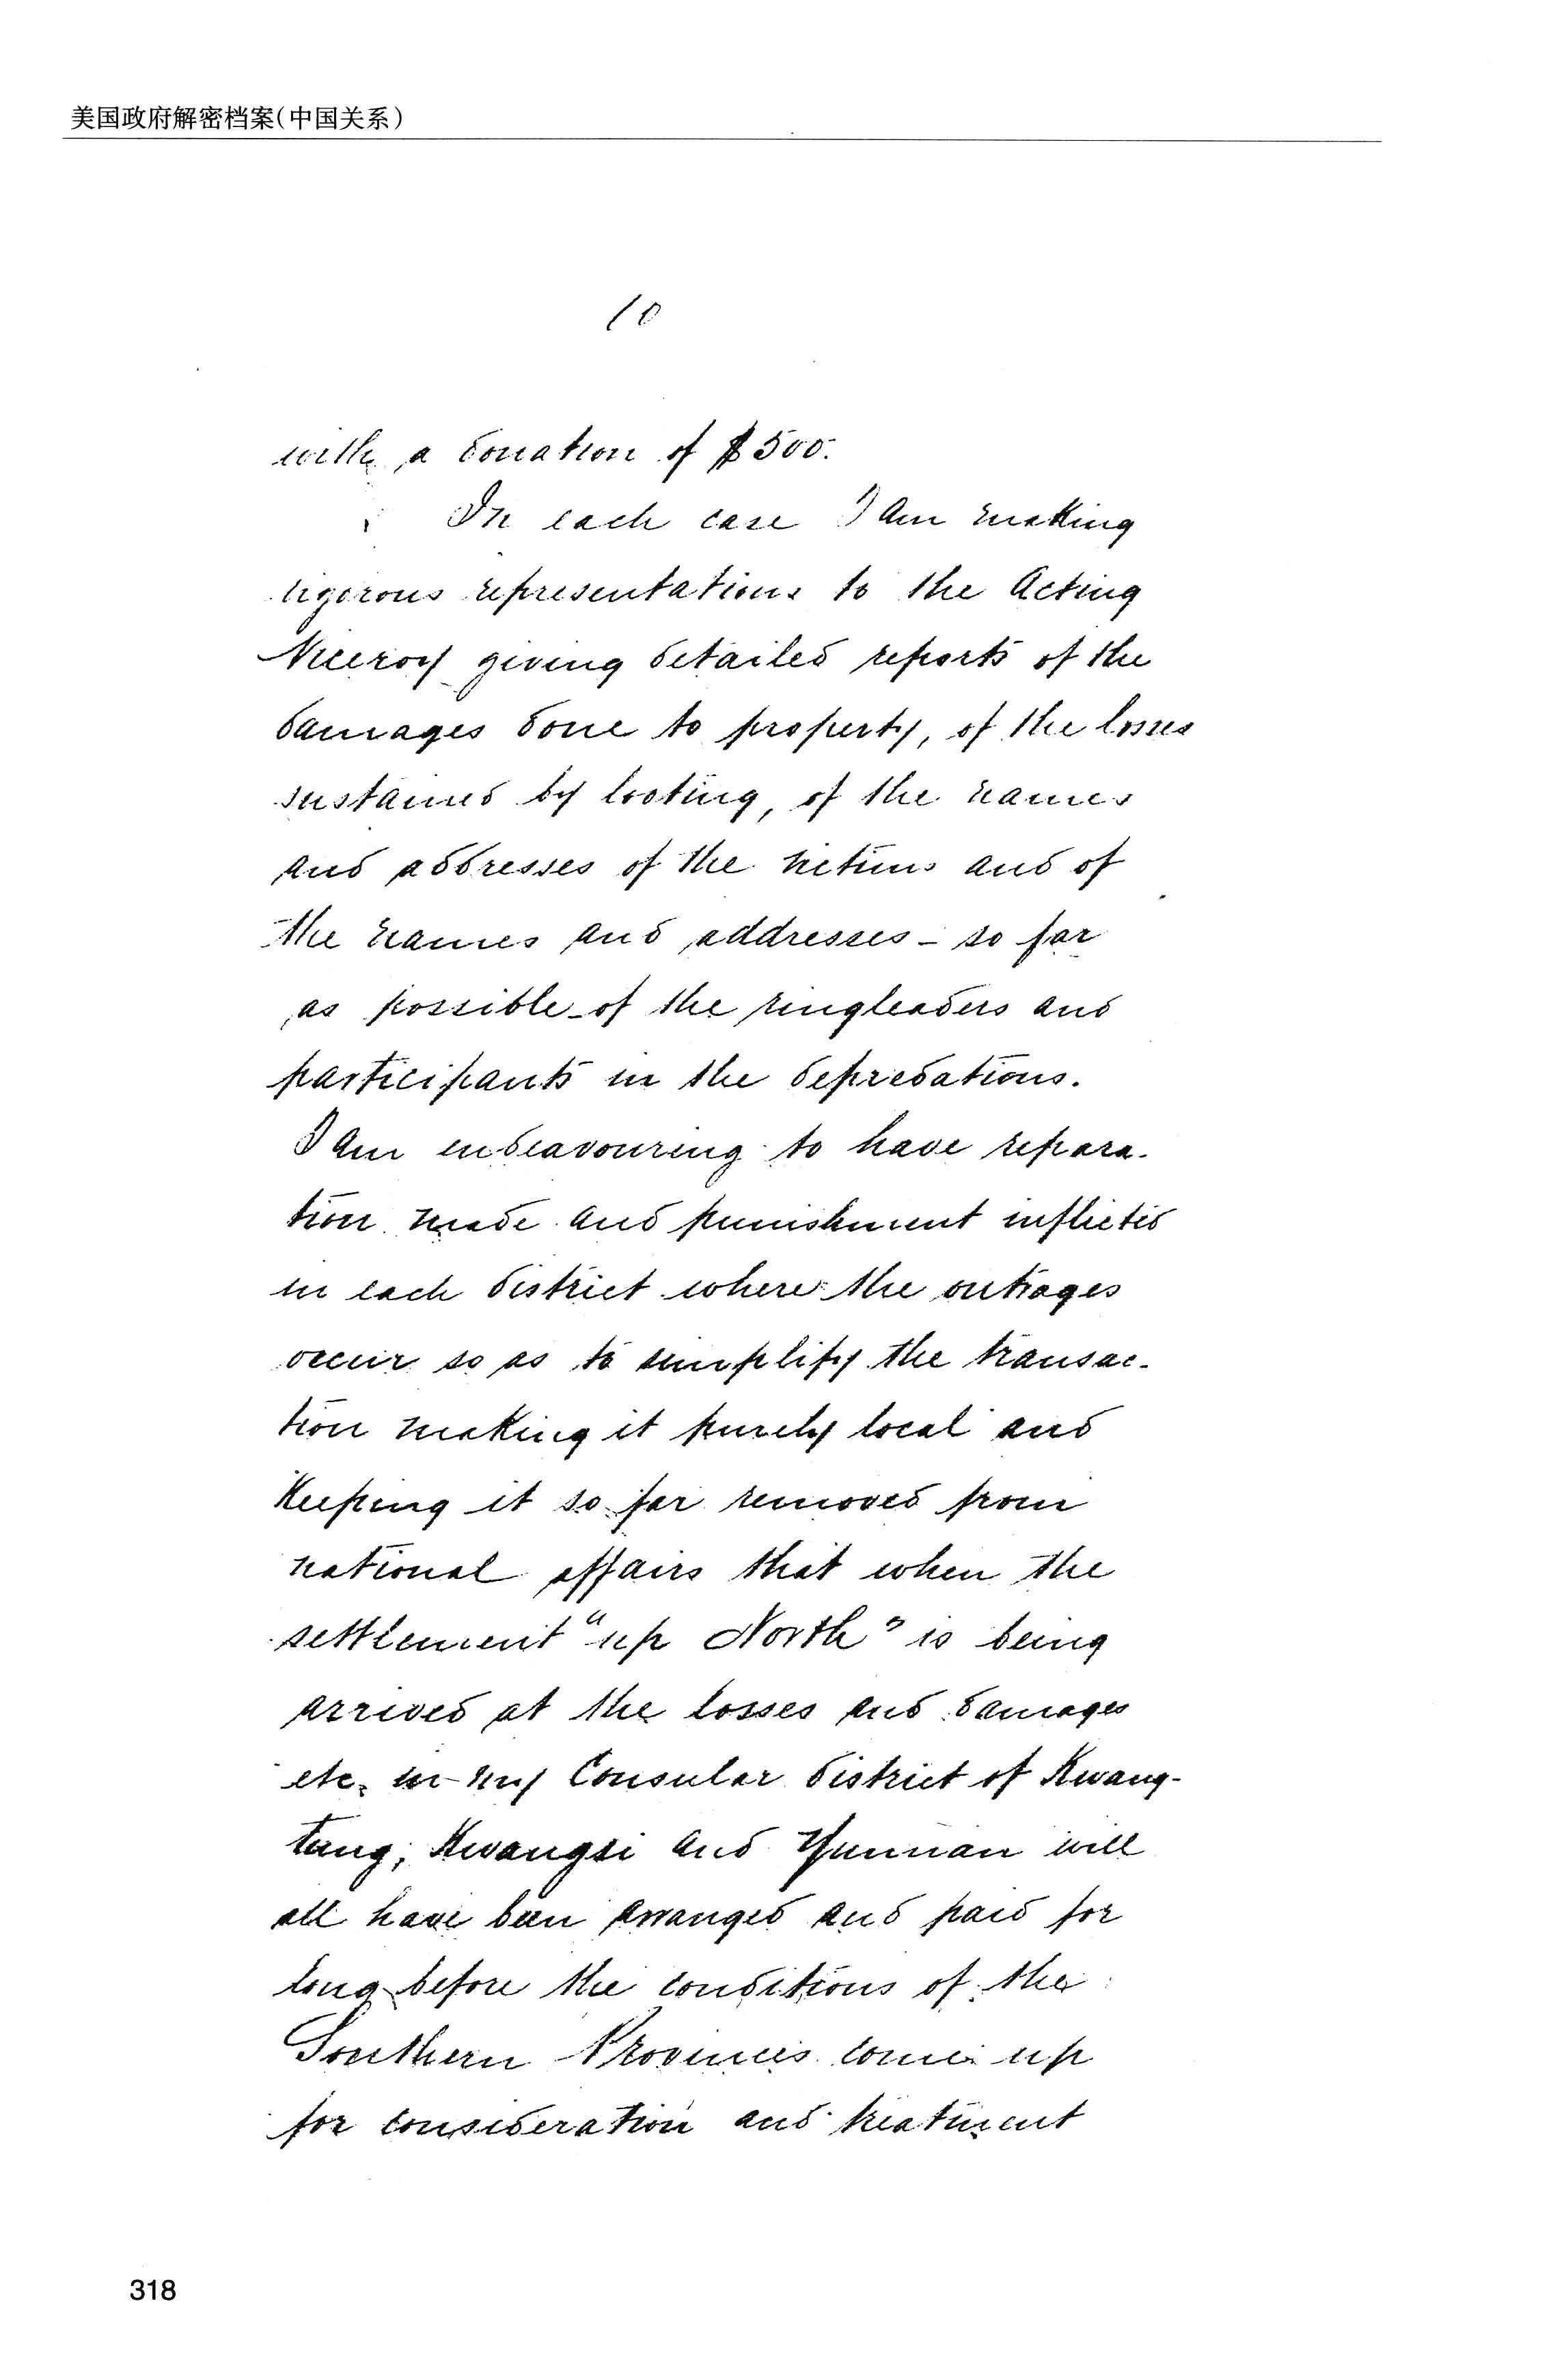 美国政府解密档案(中国关系)
10
with a donation of $500.
In each case I am making
vigorous representations to the Acting
Viceroy giving detailed reports of the
damages done to property, of the losses
sustained by looting, of the names
and addresses of the victims and of
the names and addresses - so far
as possible - of the ringleaders and
participants in the depredations.
I am endeavouring to have repara-
tion made and punishment inflicted
in each district where the outrages
occur so as to simplify the transac-
tion making it purely local and
keeping it so far removed from
national affairs that when the
settlement "up North" is being
arrived at the losses and damages
etc. in my Consular district of Kwang-
tung, Kwangsi and Yunnan will
all have been arranged and paid for
long before the conditions of the
Southern Provinces come up
for consideration and treatment
318